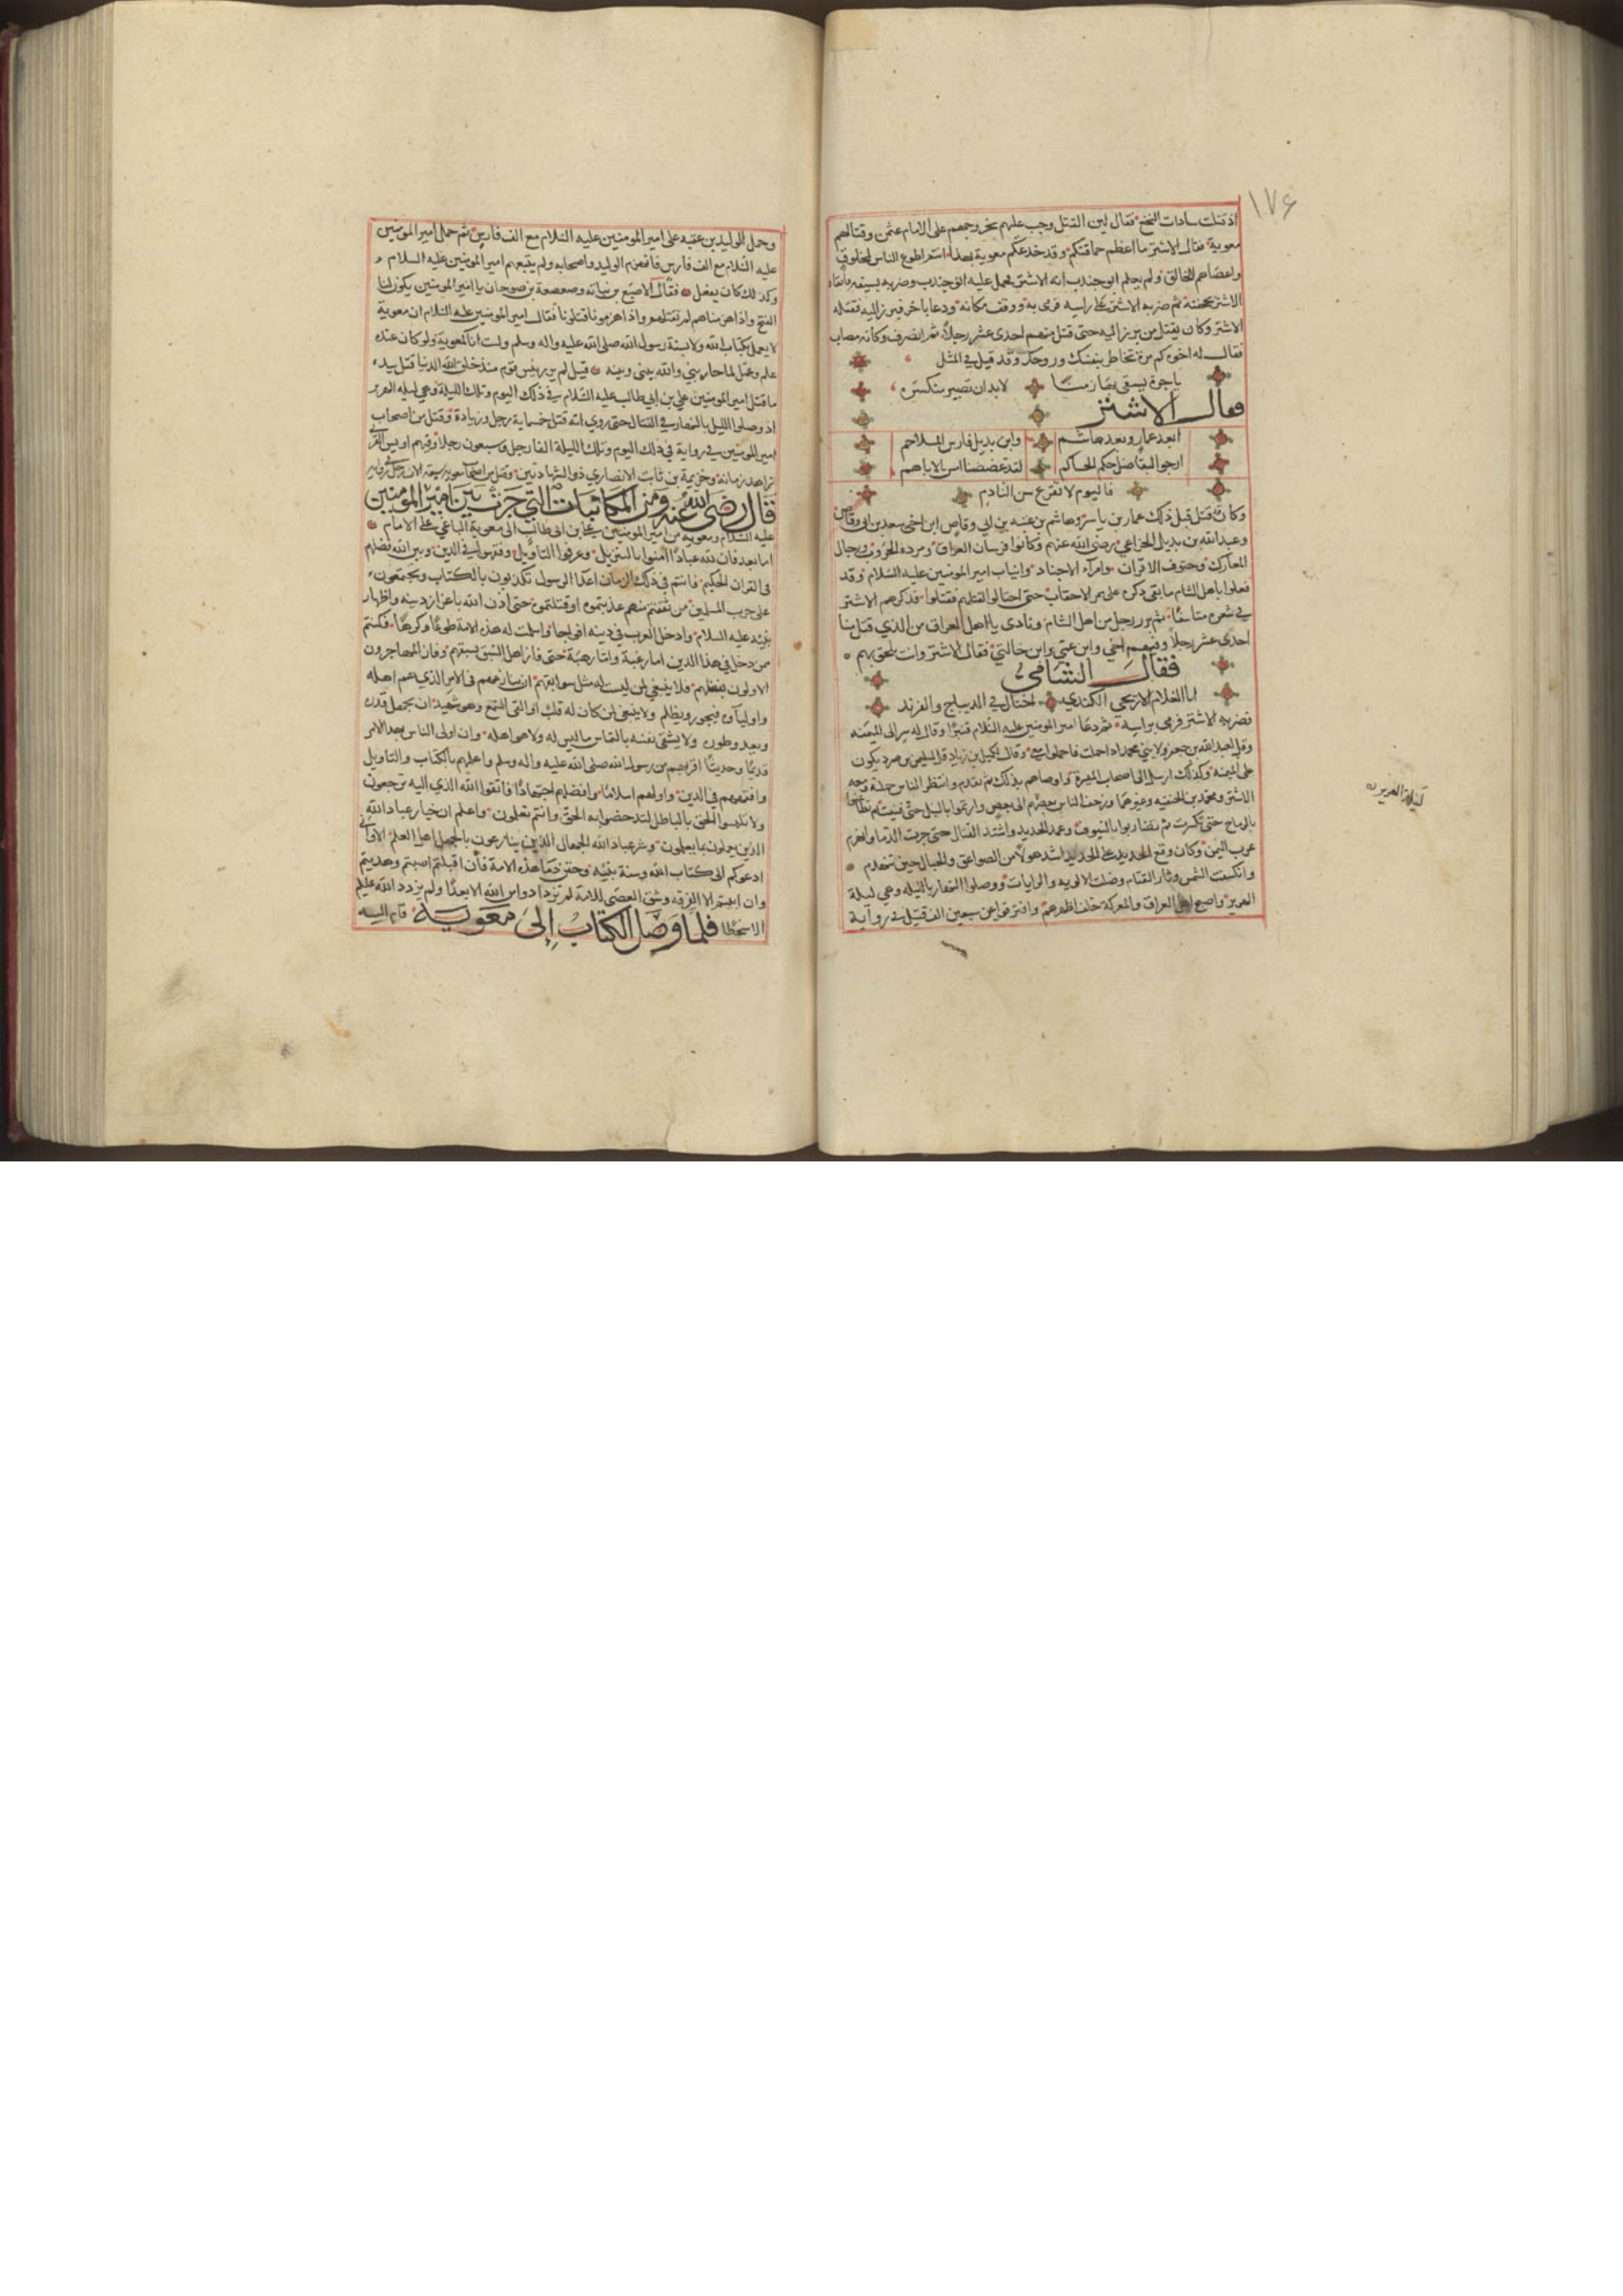 ١٧٦
اذ قتلت سادات النخع فقال لين القتل وجب عليهم بخروجهم على الامام عثمن وقتالهم
معوية فقال الاشتر ما اعظم حماقتكم وقد خدعكم معوية بهذا استمر اطوع الناس لمخلوق
واعصاهم للخالق ولم يعلم ابو جندب انه الاشتر فحمل عليه ابو جندب وضربه بسيفه فاتقاه
الاشتر بحجفته ثم ضربه الاشتر على راسه فرمى به ووقف مكانه ودعا باخر فبرز اليه فقتله
الاشتر وكان يقتل من برز اليه حتى قتل منهم احدى عشر رجلا ثم انصرف وكانه مصاب
فقال له اخوه كم مرة تخاطر بنفسك وروحك وقد قيل في المثل
ياجرة يستقى بها زمنا لابد ان تصير منكسره
فقال الاشتر
ابعد عمار وبعد هاشم وابن بديل فارس الملاحم
ارجو البقا ضل حكم الحاكم لقد عضضنا اس الاباهم
فاليوم لا نقرع سن النادم
وكان قتل قبل ذلك عمار بن ياسر وهاشم بن عتبه بن ابي وقاص ابن اخى سعد بن ابى وقاص
وعبد الله بن بديل الخزاعي رضي الله عنهم وكانوا فرسان العراق ومرده الحروب ورجال
المعارك وحتوف الاقران وامرآء الاجناد وانياب امير المومنين عليه السلام وقد
فعلوا باهل الشام ما بقى ذكره على ممر الاحقاب حتى احتالوا لقتلهم فقتلوا فذكرهم الاشتر
في شعره متاسفا ثم برز رجل من اهل الشام ونادى يا اهل العراق من الذي قتل منا
احدى عشر رجلا وفيهم اخي وابن عمي وابن خالتي فقال الاشتر وانت تلحق بهم
فقال الشامى
انا الغلام الاريحي الكندي اختال في الديباج والفرند
فضربه الاشتر فرمى براسه ثم دعا امير المومنين عليه السلام قنبرا وقال له سر الى الميمنه
وقل لعبد الله بن جعفر ولابني محمد اذا حملت فاحملوا معي وقال لكميل بن زياد قل لسليمن بن صرد يكون
على الميمنه وكذلك ارسل الى اصحاب الميسرة واوصاهم بذلك ثم تقدم وانتظر الناس حملته ومعه
الاشتر ومحمد بن الحنفيه وغيرهما وزحف الناس بعضهم الى بعض وارتموا بالنبل حتى فنيت ثم تطاعنوا
بالرماح حتى تكسرت ثم تضاربوا بالسيوف وعمد الحديد واشتد القتال حتى جرت الدما وانهزم
عرب اليمن وكان وقع الحديد على الحديد اشد هولا من الصواعق والجبال حين تنهدم
وانكسفت الشمس وثار القتام وضلت الالويه والرايات ووصلوا النهار بالليله وهي ليلة
الهرير واصبح اهل العراق والمعركة خلف اظهرهم وافترقوا عن سبعين الف قتيل في رواية
وحمل الوليد بن عقبه على امير المومنين عليه السلام مع الف فارس ثم حمل امير المومنين
عليه السلام مع الف فارس فانهزم الوليد واصحابه ولم يتبعهم امير المومنين عليه السلام
وكذلك كان يفعل فقال الاصبغ بن نباته وصعصعة بن صوحان يا امير المومنين يكون لنا
الفتح واذا هزمناهم لم نقتلهم واذا هزمونا قتلونا فقال امير المومنين عليه السلام ان معوية
لا يعمل بكتاب الله ولا بسنة رسول الله صلى الله عليه واله وسلم ولست انا كمعوية ولو كان عنده
علم وعمل لما حاربني والله بينى وبينه قيل لم ير رئيس قوم منذ خلق الله الدنيا قتل بيده
ما قتل امير المومنين علي بن ابى طالب عليه السلام في ذلك اليوم وتلك الليلة وهى ليله الهرير
اذ وصلوا الليل بالنهار في القتال حتى روي انه قتل خمسماية رجل وزيادة وقتل من اصحاب
امير المومنين في رواية في ذلك اليوم وتلك الليلة الفا رجل وسبعون رجلا وفيهم اويس القرني
زاهد زمانه وخزيمة بن ثابت الانصاري ذو الشهادتين وقتل من اصحاب معويه سبعه الاف رجل في رواية
قال رضى الله عنه ومن المكاتبات التي جرت بين امير المومنين
عليه السلام ومعويه من امير المومنين على ابن ابى طالب الى معوية الباغي على الامام
اما بعد فان لله عبادا امنوا بالتنزيل وعرفوا التاويل وفقهوا في الدين وبين الله فضلهم
فى القران الحكيم وانتم في ذلك الزمان اعدا الرسول تكذبون بالكتاب ومجتمعون
على حرب المسلمين من ثقفتم منهم عذبتموه او قتلتموه حتى اذن الله باعزاز دينه واظهار
نبيه عليه السلام وادخل العرب في دينه افواجا واسلمت له هذه الامة طوعا وكرها فكنتم
ممن دخل في هذا الدين اما رغبة واما رهبة حتى فاز اهل السبق بسبقهم وفاز المهاجرون
الاولون بفضلهم فلا ينبغي لمن ليست له مثل سوابقهم ان ينازعهم فى الامر الذي هم اهله
واولياوه فيجور ويظلم ولا ينبغى لمن كان له قلب او القى السمع وهو شهيد ان يجهل قدره
ويعدو طوره ولا يشقى نفسه بالتماس ما ليس له ولا هو اهله وان اولى الناس بهذا الامر
قديما وحديثا اقربهم من رسول الله صلى الله عليه واله وسلم واعلمهم بالكتاب والتاويل
وافقههم فى الدين واولهم اسلاما وافضلهم اجتهادا فاتقوا الله الذي اليه ترجعون
ولا تلبسوا الحق بالباطل لتدحضوا به الحق وانتم تعلمون واعلم ان خيار عباد الله
الذين يعملون بما يعلمون وشر عباد الله الجهال الذين ينازعون بالجهل اهل العلم الا وانى
ادعوكم الى كتاب الله وسنة نبيه وحقن دما هذه الامة فان اقبلتم اصبتم وهديتم
وان ابيتم الا الفرقه وشق العصى للامة لم تزدادوا من الله الا بعدا ولم يزدد الله عليكم
الا سخطا فلما وصل الكتاب الى معوية قام اليه
ليلة الهرير